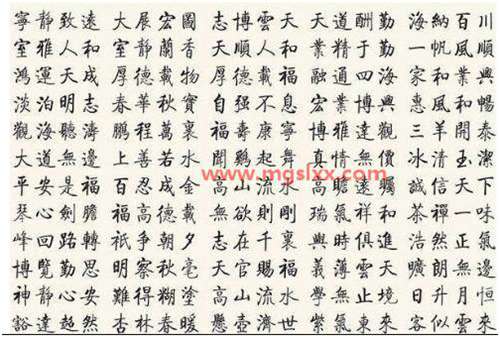 寧靜致遠 大展宏圖 志博雲天 天道酬勤 海納百川
室雅人和 室靜蘭香 志順人和 業精于勤 一帆風順
鴻運天成 厚德載物 厚德載福 融通四海 一家業興
淡泊明志 春華秋實 自强不息 宏業博興 惠風和暢
觀海聽濤 鵬程萬裏 福壽康寧 博雅達觀 三羊開泰
大道無邊 上善若水 聞鷄起舞 真情無價 冰清玉潔
平安是福 百忍成金 高山流水 高瞻遠矚 誠信天下
琴心劍膽 福高德載 無欲則剛 瑞氣祥和 茶禪一味
峰回路轉 祇爭朝夕 志在千裏 興時俱進 浩然正氣
博覽勤思 明察秋毫 天官賜福 義薄雲天 朗無邊
神靜心安 難得糊塗 高山流水 學無止境 日升月恒
豁達超然 杏林春暖 懸壺濟世 紫氣東來 客似雲來
www.mgslxx.com